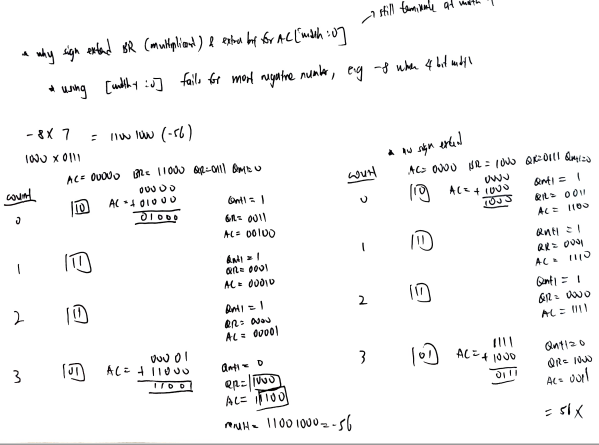 → still terminate at width -1
* why sign extend BR (multiplicand) & extra bit for AC [width :0]
* using [width-1 :0] fails for most negative number, e.g -8 when 4 bit width
-8 x 7 = 1100 1000 (-56)
1000 x 0111
AC= 00000 BR= 11000 QR=0111 Qn+1=0
count
0 10 AC= 00000
+ 01000
01000
Qn+1 = 1
QR= 0011
AC= 00100
1 11 Qn+1 = 1
QR= 0001
AC= 00010
2 11 Qn+1 = 1
QR= 0000
AC= 00001
3 01 AC= 00001
+ 11000
11001
Qn+1 = 0
QR= 1000
AC= 11100
result= 11001000 = -56
* no sign extend
AC= 0000 BR= 1000 QR=0111 Qn+1=0
count
0 10 AC= 0000
+ 1000
1000
Qn+1 = 1
QR= 0011
AC= 1100
1 11 Qn+1 = 1
QR= 0001
AC= 1110
2 11 Qn+1 = 1
QR= 0000
AC= 1111
3 01 AC= 1111
+ 1000
0111
Qn+1=0
QR= 1000
AC= 0011
= 56 X